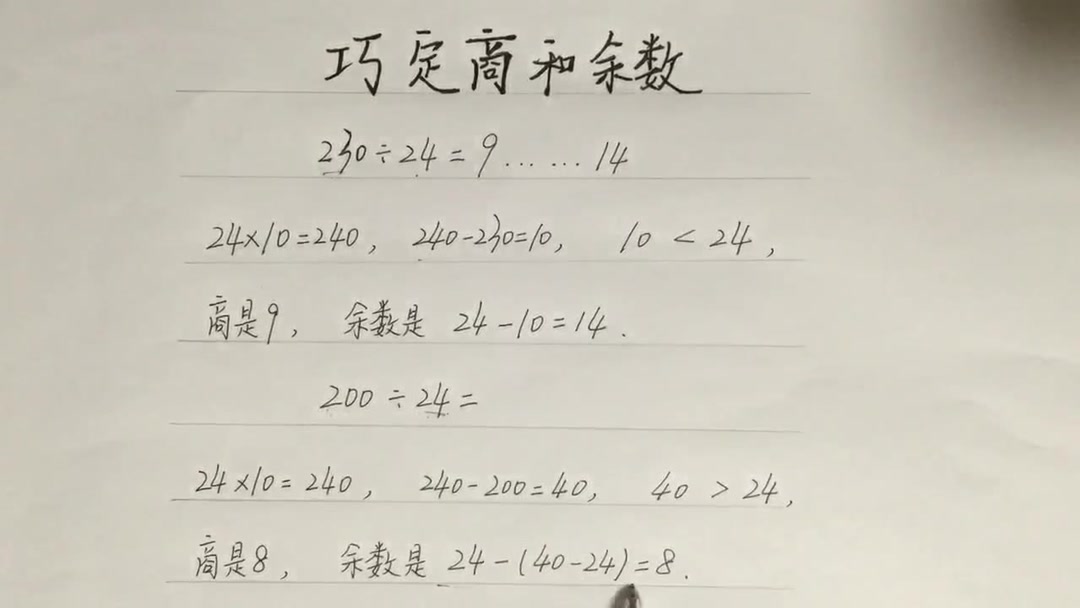 巧定商和余数
230÷24=9……14
24×10=240, 240-230=10, 10<24,
商是9, 余数是 24-10=14.
200÷24=
24×10=240, 240-200=40, 40>24,
商是8, 余数是 24-(40-24)=8.